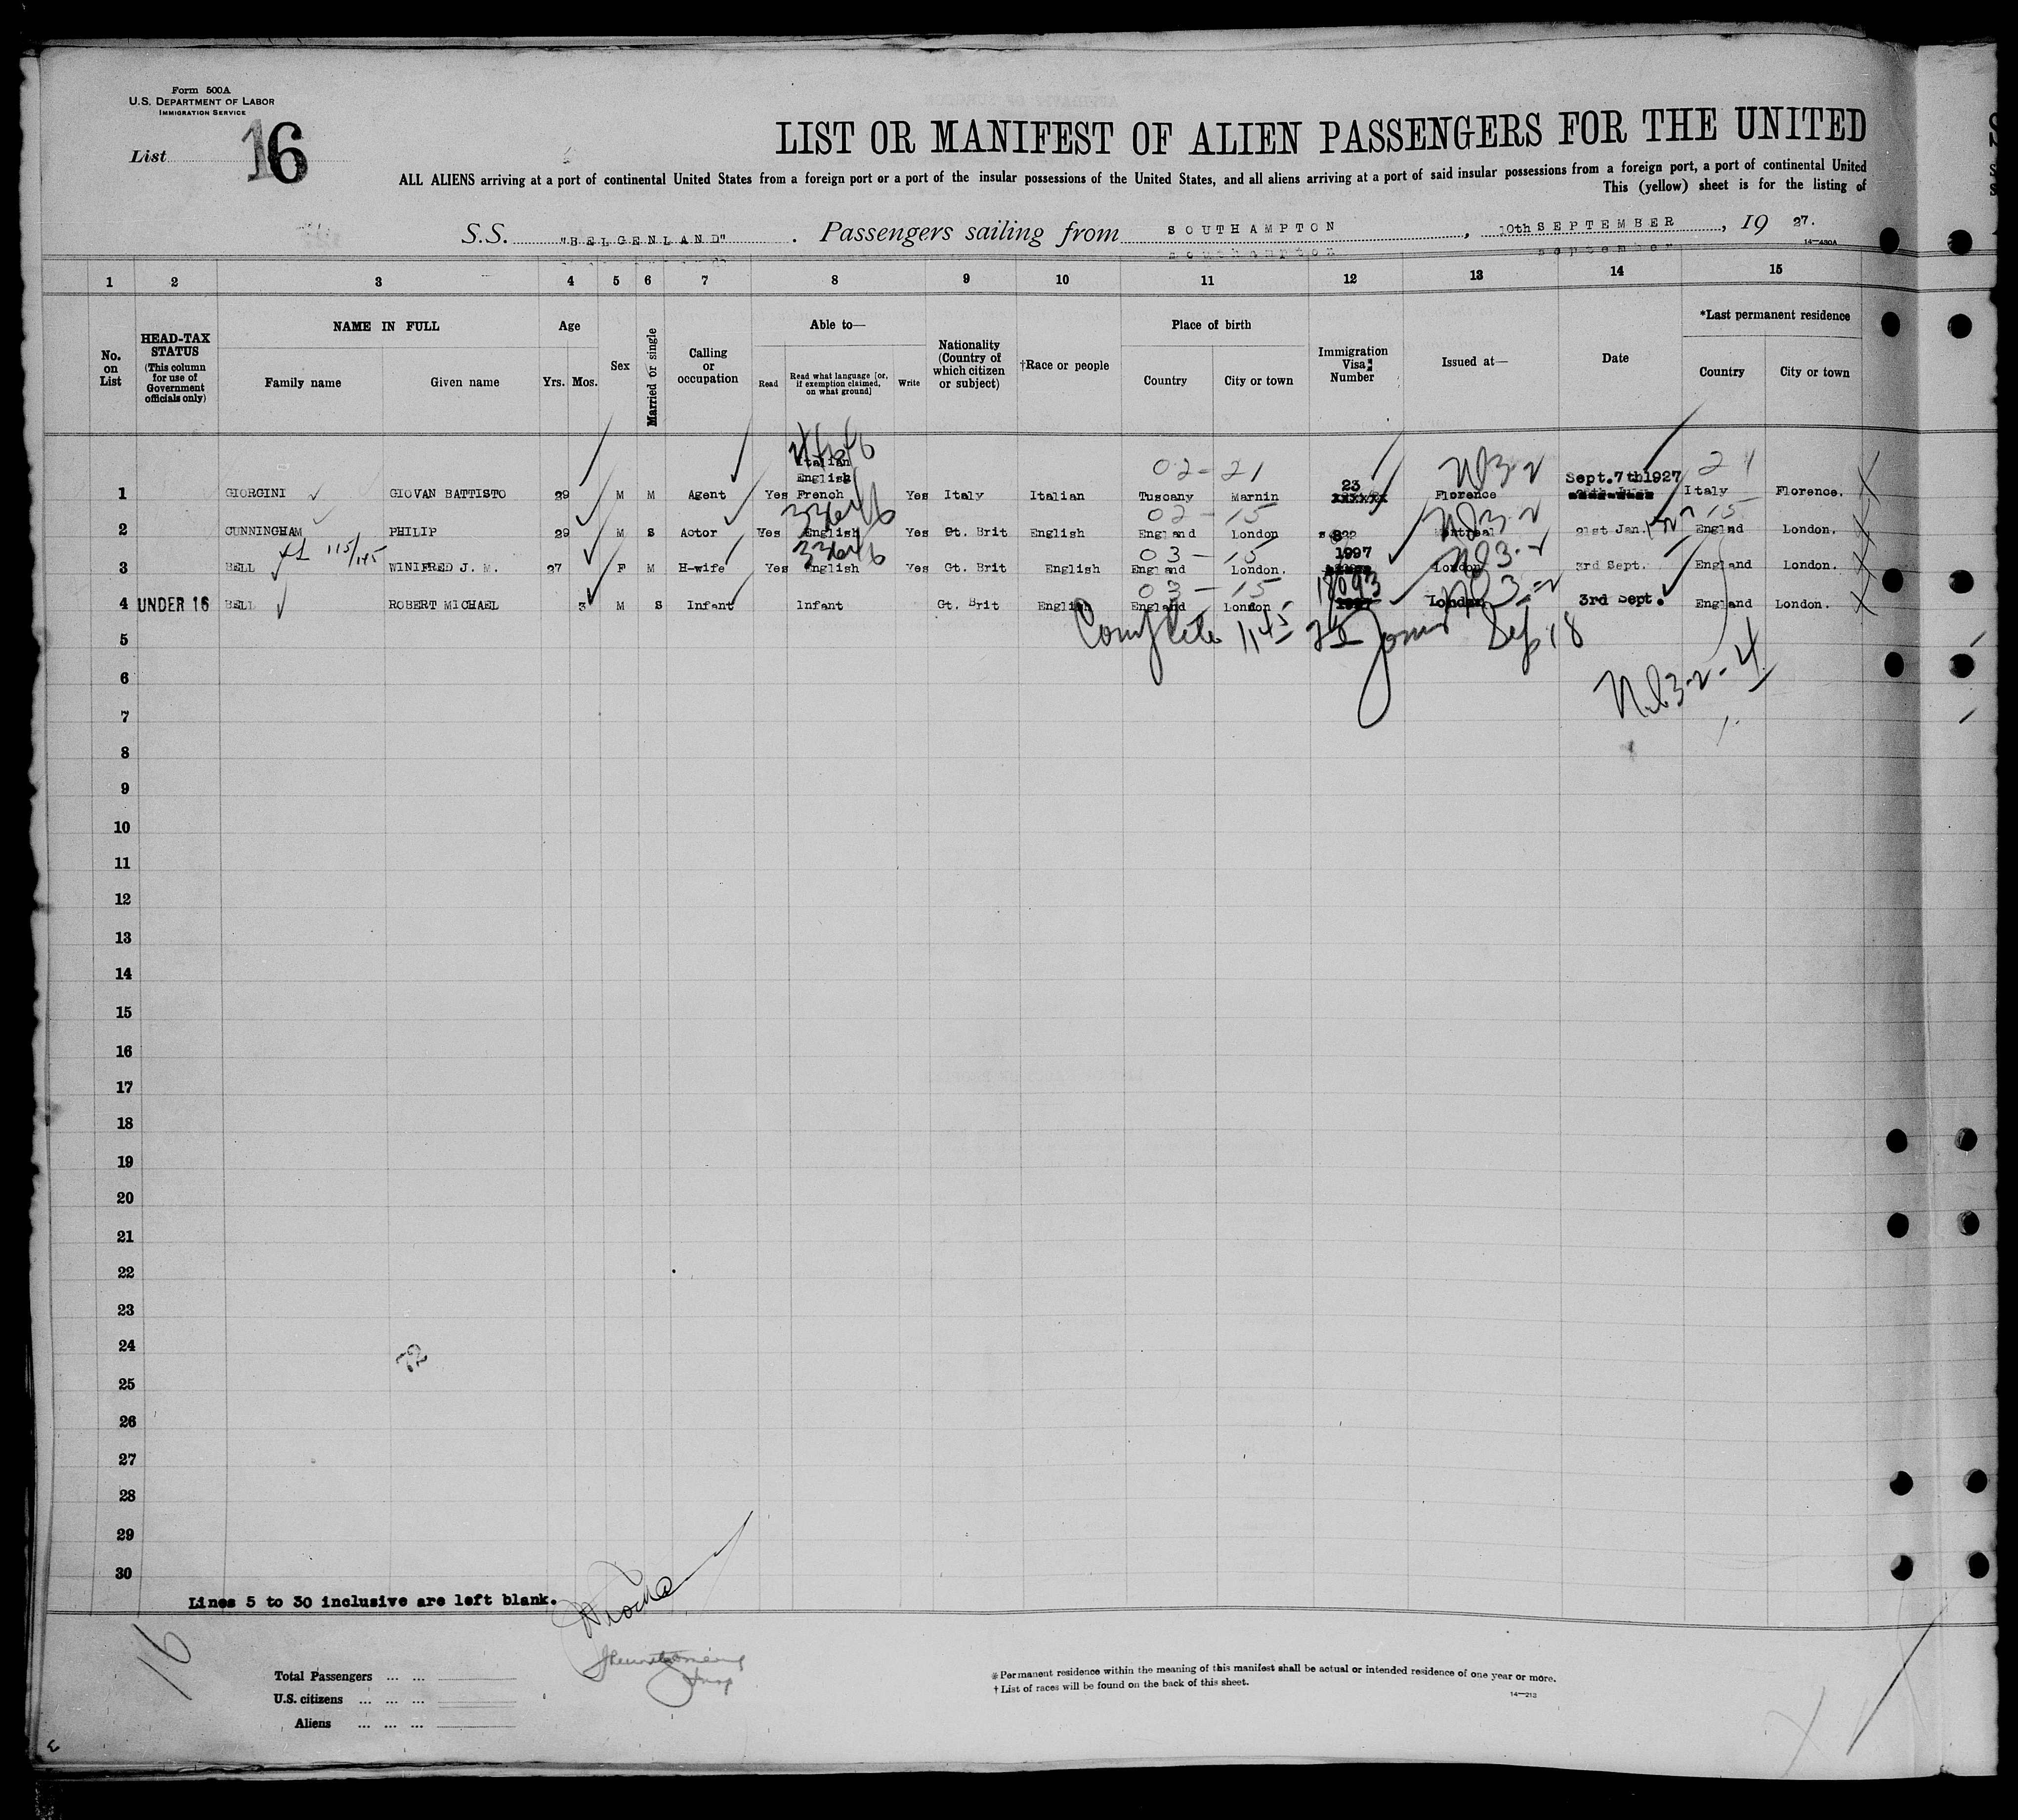 Form 500A
U.S. DEPARTMENT OF LABOR
IMMIGRATION SERVICE
List 16
LIST OR MANIFEST OF ALIEN PASSENGERS FOR THE UNITED
ALL ALIENS arriving at a port of continental United States from a foreign port or a port of the insular possessions of the United States, and all aliens arriving at a port of said insular possessions from a foreign port, a port of continental United
This (yellow) sheet is for the listing of
S.S. "BELGENLAND" . Passengers sailing from SOUTHAMPTON , 10th SEPTEMBER , 19 27.
14—430A
1 2 3 4 5 6 7 8 9 10 11 12 13 14 15
No. on List
HEAD-TAX STATUS (This column for use of Government officials only)
NAME IN FULL
Family name Given name
Age
Yrs. Mos.
Sex
Married or single
Calling or occupation
Able to—
Read Read what language [or, if exemption claimed, on what ground] Write
Nationality (Country of which citizen or subject)
†Race or people
Place of birth
Country City or town
Immigration Visa Number
Issued at—
Date
*Last permanent residence
Country City or town
Italian
English
02-21 23 Nl3-2 Sept.7th1927 24
1 GIORGINI GIOVAN BATTISTO 29 M M Agent Yes French Yes Italy Italian Tuscany Marnin Florence Italy Florence.
33646 02-15 Nl3-2 15
2 CUNNINGHAM PHILIP 29 M S Actor Yes English Yes Gt. Brit English England London 822 Montreal 21st Jan. England London.
115/145 33646 03-15 1997 Nl3-2
3 BELL WINIFRED J. M. 27 F M H-wife Yes English Yes Gt. Brit English England London. London 3rd Sept. England London.
03-15 18093
4 UNDER 16 BELL ROBERT MICHAEL 3 M S Infant Infant Gt. Brit English England London 1997 London 3rd Sept. England London.
Complete 1145 Jones Sep 18
5
6
Nl3-2-4
7
8
9
10
11
12
13
14
15
16
17
18
19
20
21
22
23
24
72
25
26
27
28
29
30
Lines 5 to 30 inclusive are left blank.
16
Total Passengers ... ...
U.S. citizens ... ... ...
Aliens ... ... ...
* Permanent residence within the meaning of this manifest shall be actual or intended residence of one year or more.
† List of races will be found on the back of this sheet.
14—213